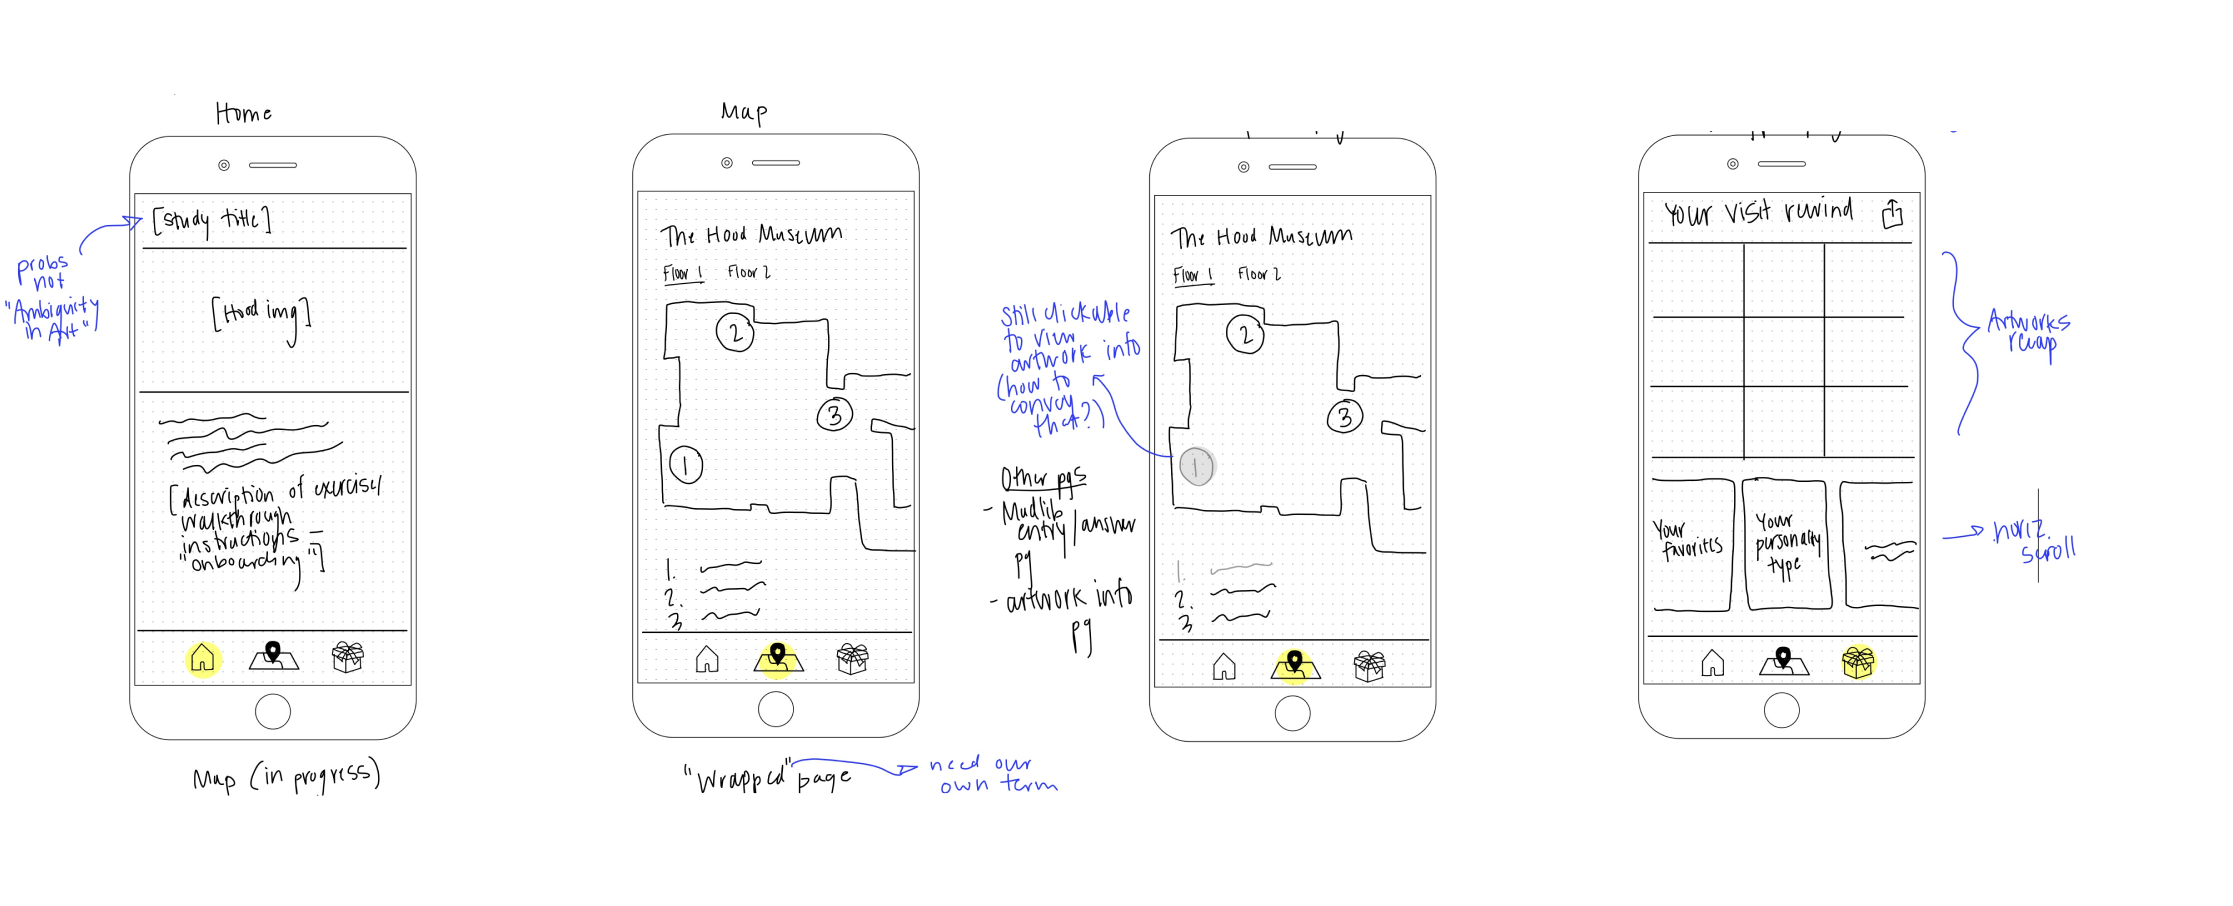 Home
[study title]
probs
not
"Ambiguity
in Art"
[Hood img]
[description of exercise/
walkthrough
instructions –
"onboarding"]
Map (in progress)
Map
The Hood Museum
Floor 1 Floor 2
2
3
1
1.
2.
3
"Wrapped" page
need our
own term
still clickable
to view
artwork info
(how to
convey
that?)
Other pgs
- Madlib
entry/answer
pg
- artwork info
pg
The Hood Museum
Floor 1 Floor 2
2
3
1
1.
2.
3
Your visit rewind
Artworks
recap
Your
favorites
Your
personality
type
horiz.
scroll